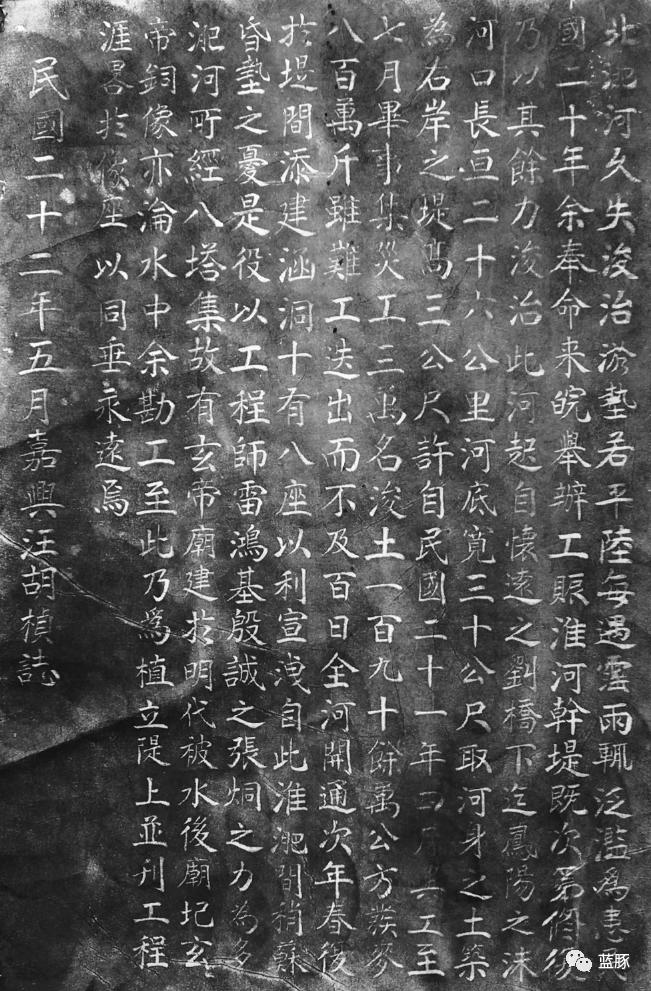 北淝河久失浚治淤墊若平陸每遇霪雨輒泛濫為患民
國二十年余奉命来皖舉辦工賑淮河幹堤既次第修復
乃以其餘力浚治此河起自懷遠之劉橋下迄鳳陽之沫
河口長亘二十六公里河底寬三十公尺取河身之土築
為右岸之堤高三公尺許自民國二十一年四月興工至
七月畢事集災工三萬名浚土一百九十餘萬公方燕麥
八百萬斤雖難工迭出而不及百日全河開通次年春復
於堤間添建涵洞十有八座以利宣洩自此淮淝間稍蘇
昏墊之憂是役以工程師雷鴻基殷誠之張炯之力為多
淝河所經八塔集故有玄帝廟建於明代被水後廟圮玄
帝銅像亦淪水中余勘工至此乃為植立隄上並刊工程
涯畧於像座以同垂永遠焉
民國二十二年五月嘉興汪胡楨誌
蓝豚